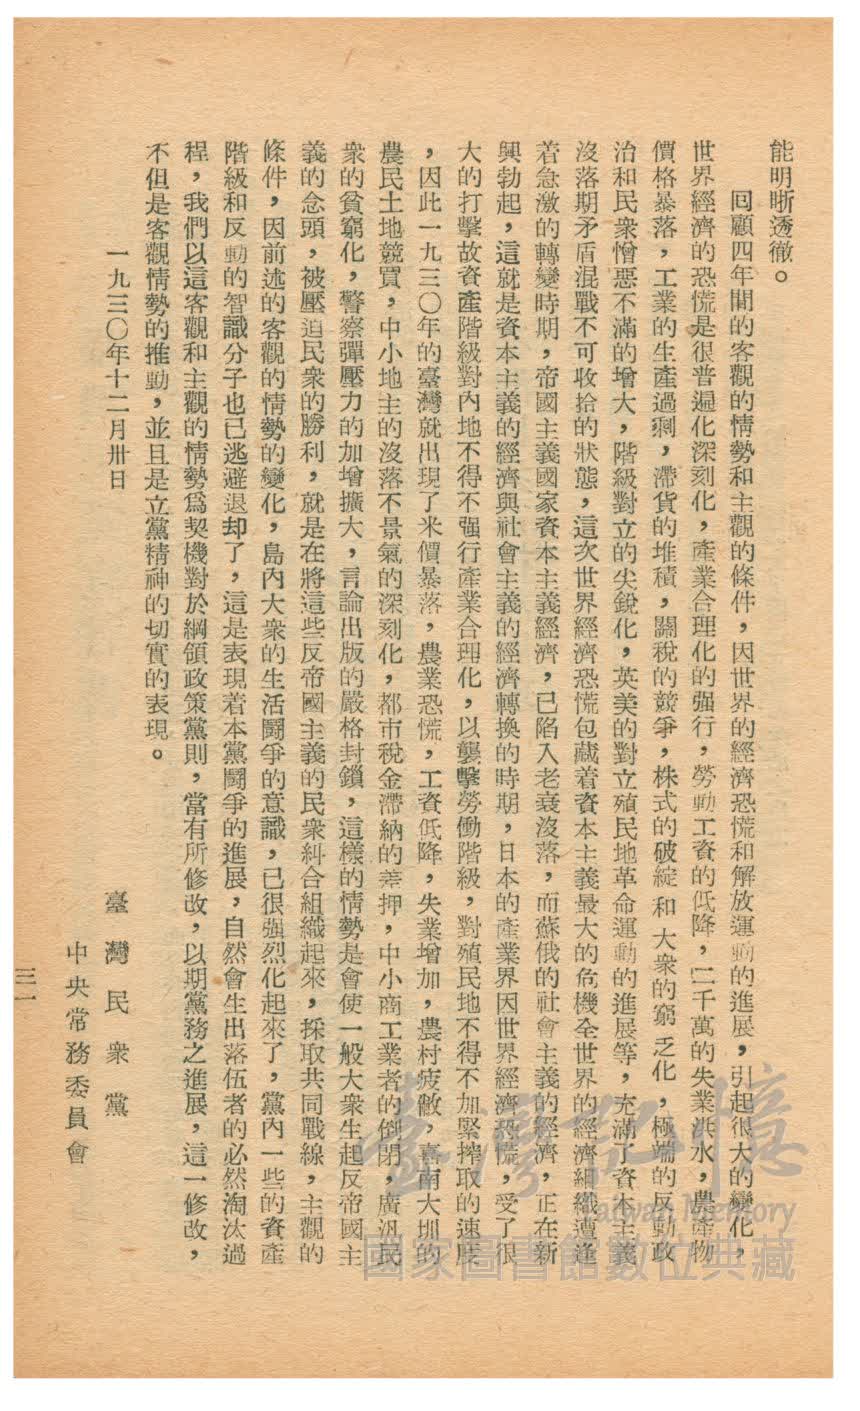 能明晰透徹。
回顧四年間的客觀的情勢和主觀的條件，因世界的經濟恐慌和解放運動的進展，引起很大的變化，
世界經濟的恐慌是很普遍化深刻化，產業合理化的强行，勞動工資的低降，二千萬的失業洪水，農產物
價格暴落，工業的生產過剩，滯貨的堆積，關稅的競爭，株式的破綻和大衆的窮乏化，極端的反動政
治和民衆憎惡不滿的增大，階級對立的尖銳化，英美的對立殖民地革命運動的進展等，充滿了資本主義
沒落期矛盾混戰不可收拾的狀態，這次世界經濟恐慌包藏着資本主義最大的危機全世界的經濟組織遭逢
着急激的轉變時期，帝國主義國家資本主義經濟，已陷入老衰沒落，而蘇俄的社會主義的經濟，正在新
興勃起，這就是資本主義的經濟與社會主義的經濟轉換的時期，日本的產業界因世界經濟恐慌，受了很
大的打擊故資產階級對內地不得不强行產業合理化，以襲擊勞働階級，對殖民地不得不加緊搾取的速度
，因此一九三〇年的臺灣就出現了米價暴落，農業恐慌，工資低降，失業增加，農村疲敝，嘉南大圳的
農民土地競買，中小地主的沒落不景氣的深刻化，都市稅金滯納的差押，中小商工業者的倒閉，廣汎民
衆的貧窮化，警察彈壓力的加增擴大，言論出版的嚴格封鎖，這樣的情勢是會使一般大衆生起反帝國主
義的念頭，被壓迫民衆的勝利，就是在將這些反帝國主義的民衆糾合組織起來，採取共同戰線，主觀的
條件，因前述的客觀的情勢的變化，島內大衆的生活鬪爭的意識，已很强烈化起來了，黨內一些的資產
階級和反動的智識分子也已逃避退却了，這是表現着本黨鬪爭的進展，自然會生出落伍者的必然淘汰過
程，我們以這客觀和主觀的情勢爲契機對於綱領政策黨則，當有所修改，以期黨務之進展，這一修改，
不但是客觀情勢的推動，並且是立黨精神的切實的表現。
一九三〇年十二月卅日
臺灣民衆黨
中央常務委員會
三一
臺灣記憶
Taiwan Memory
國家圖書館數位典藏